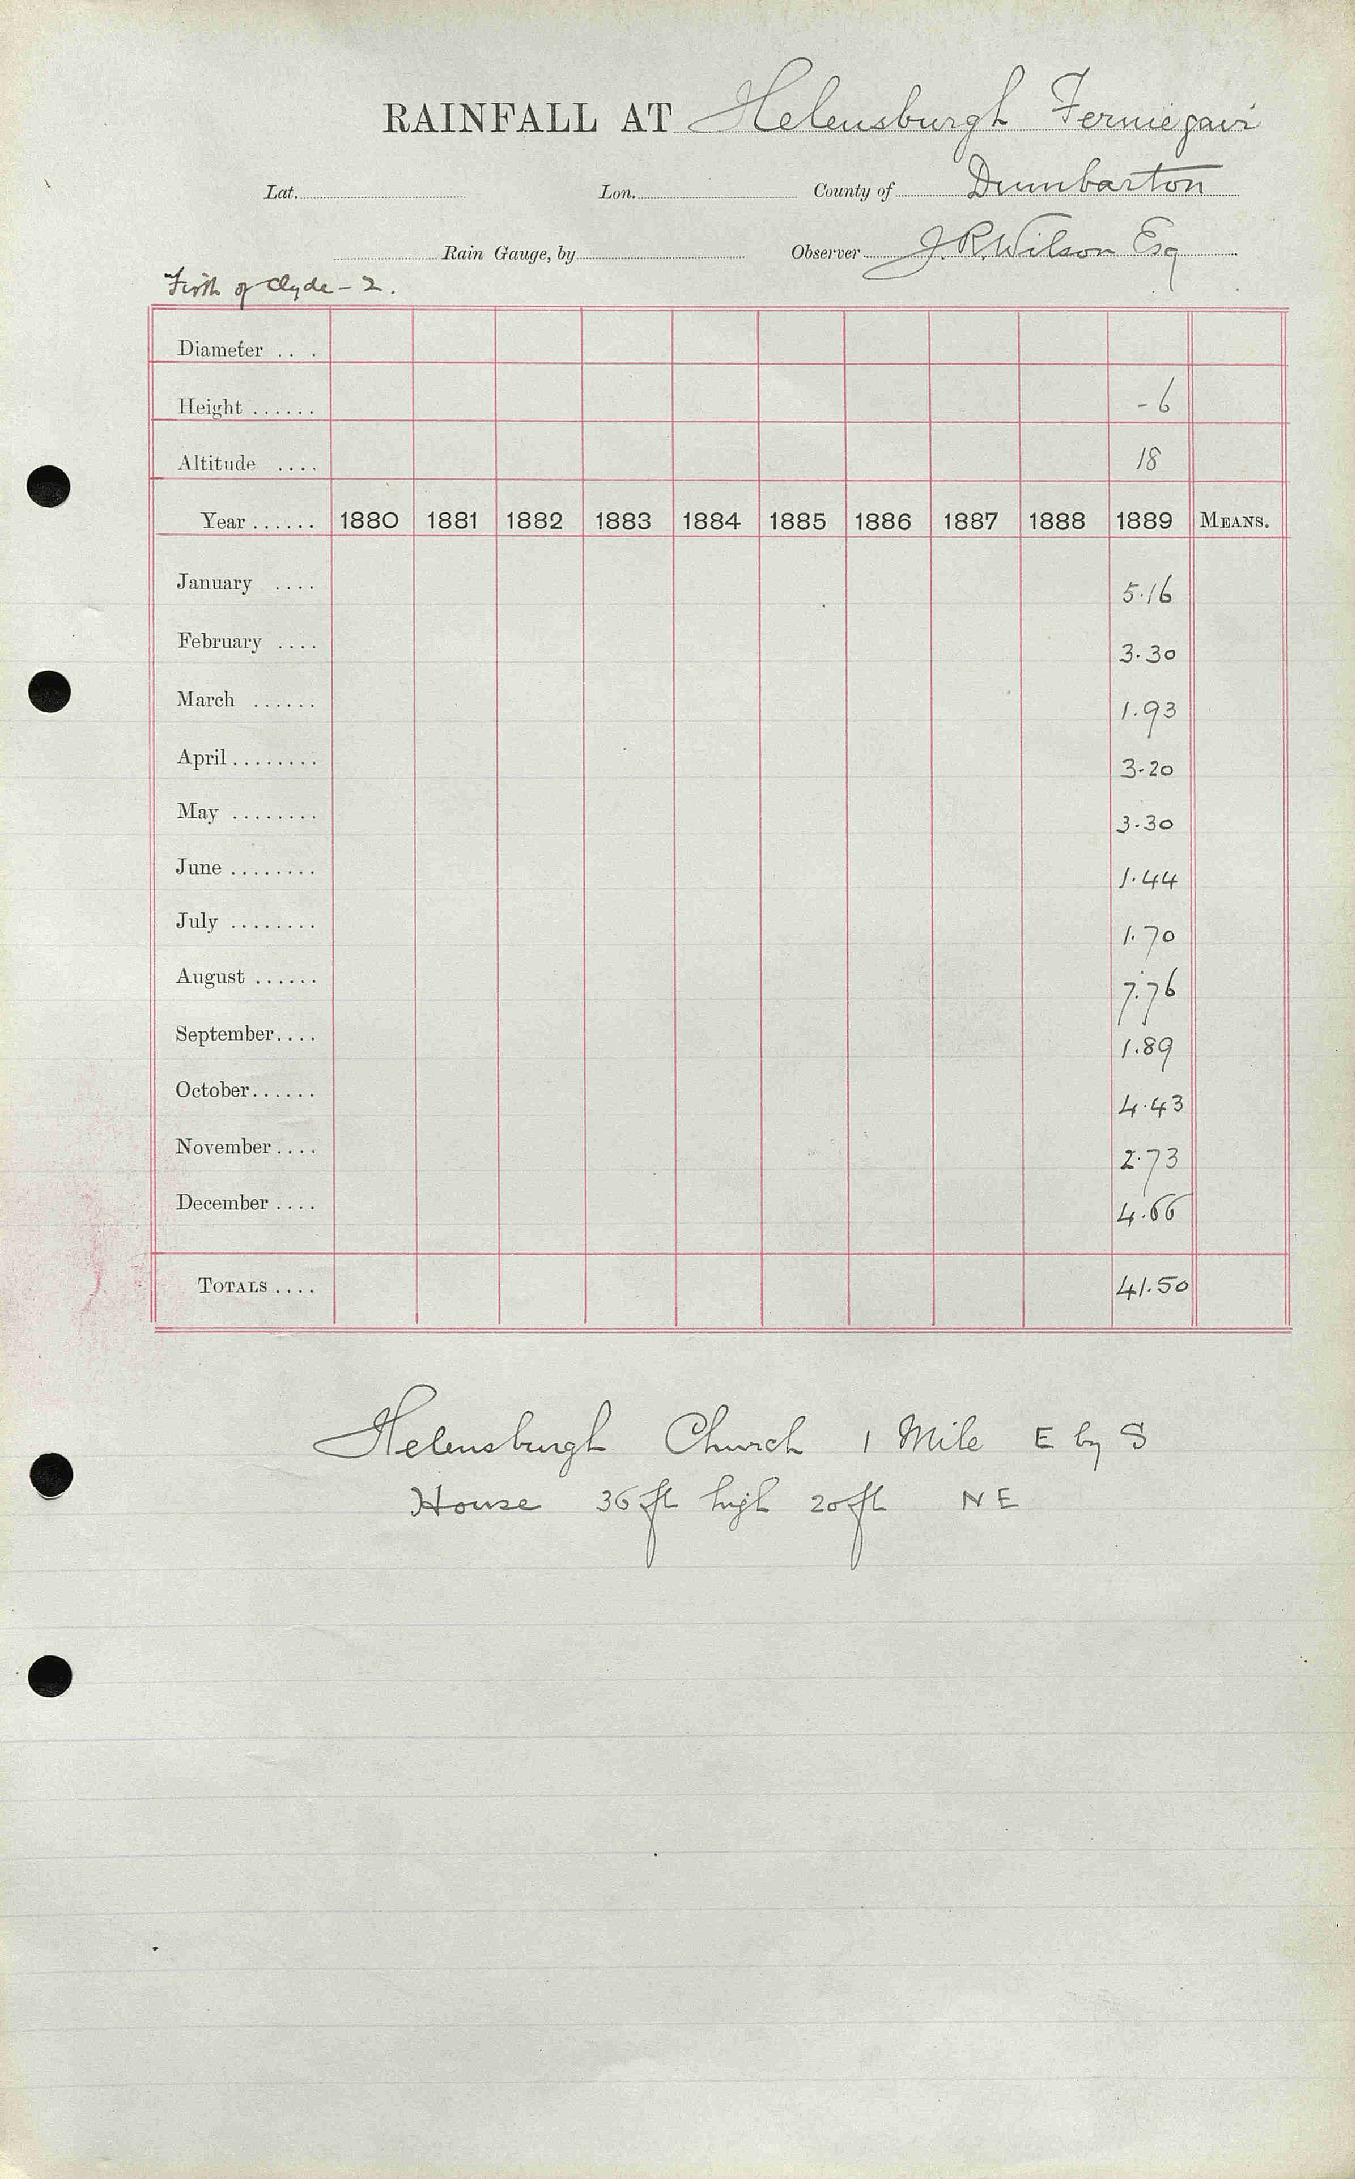 RAINFALL AT Helensburgh Ferniegair
Lat. Lon. County of Dumbarton
Rain Gauge, by Observer J. R. Wilson Esq
Firth of Clyde - 2.
Diameter . . .
Height ...... -6
Altitude .... 18
Year ...... 1880 1881 1882 1883 1884 1885 1886 1887 1888 1889 MEANS.
January .... 5.16
February .... 3.30
March ...... 1.93
April ........ 3.20
May ........ 3.30
June ........ 1.44
July ........ 1.70
August ...... 7.76
September .... 1.89
October ...... 4.43
November .... 2.73
December .... 4.66
TOTALS .... 41.50
Helensburgh Church 1 Mile E by S
House 36 ft high 20 ft NE